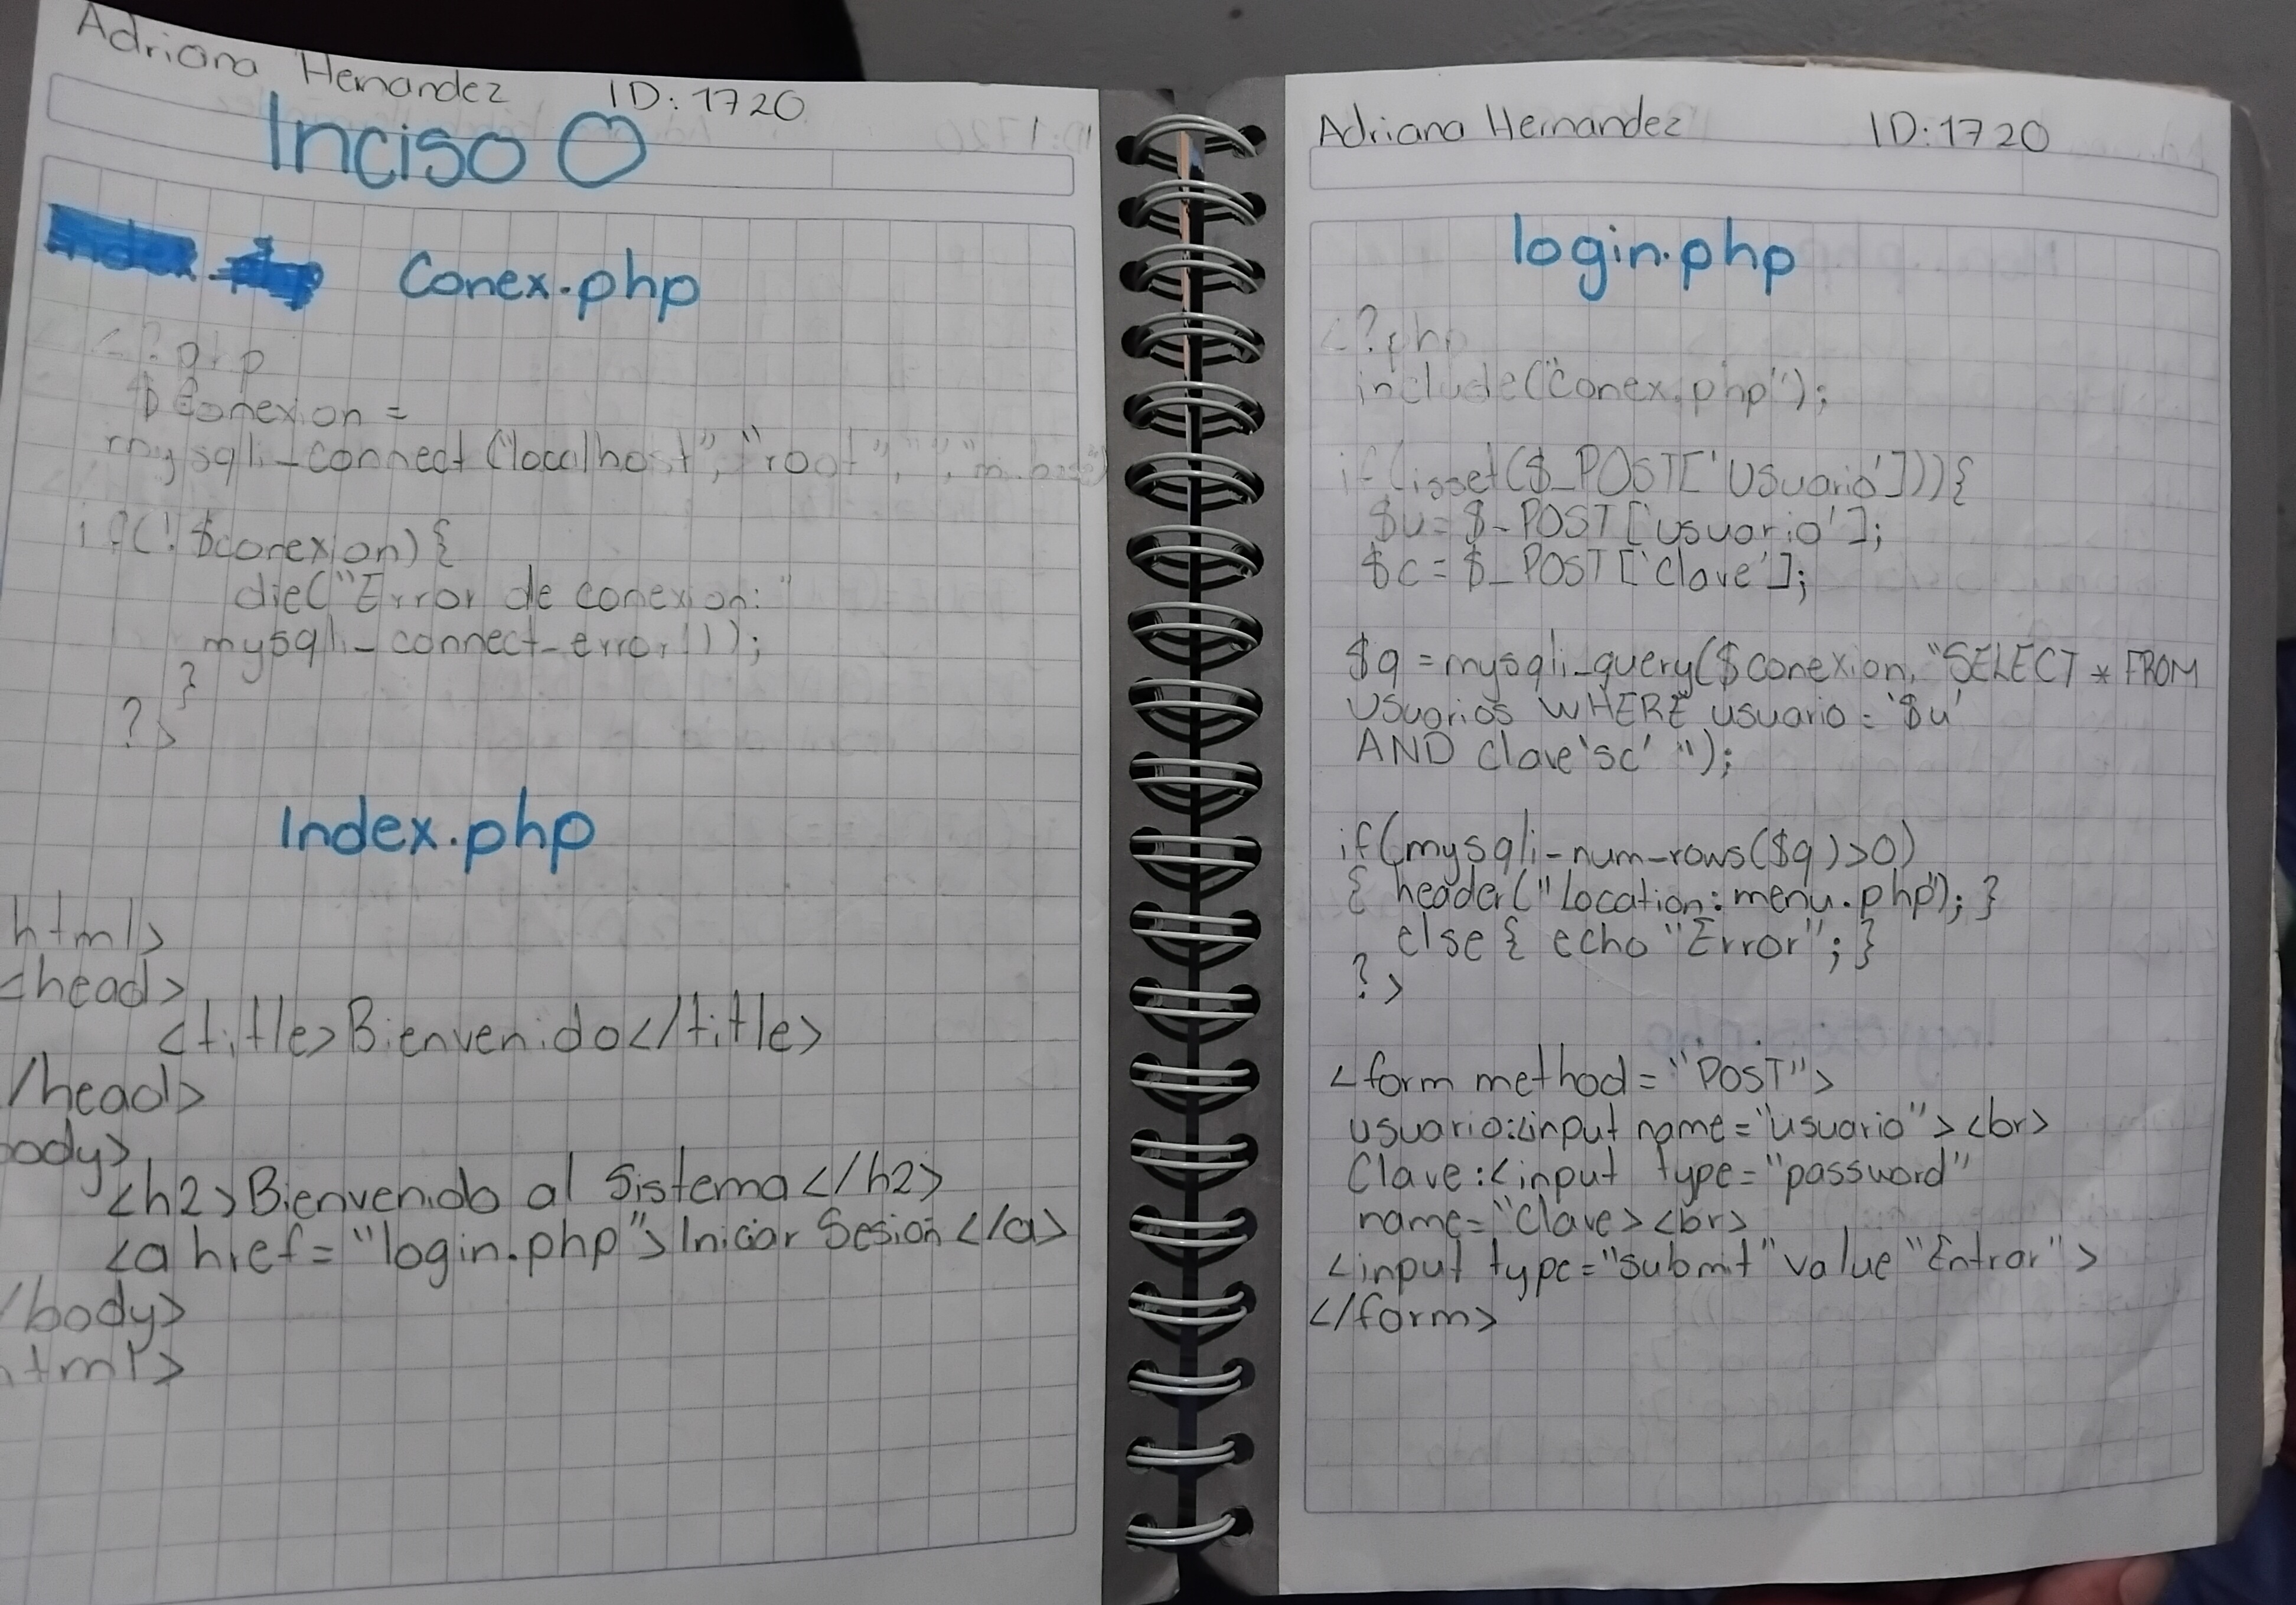 Adriana Hernandez ID: 1720
Inciso O
Index.php Conex.php
<?php
$Conexion =
mysqli_connect("localhost", "root", "",
if(!$conexion){
die("Error de conexion:"
mysqli_connect_error());
}
?>
Index.php
html>
<head>
<title>Bienvenido</title>
/head>
body>
<h2>Bienvenido al Sistema</h2>
<a href="login.php">Iniciar Sesion</a>
/body>
html>
Adriana Hernandez ID:1720
login.php
<?php
include("Conex.php");
if(isset($_POST['Usuario'])){
$u=$_POST['usuario'];
$c=$_POST['Clave'];
$q=mysqli_query($conexion,"SELECT * FROM
Usuarios WHERE usuario='$u'
AND Clave'sc' ");
if(mysqli-num-rows($q)>0)
{ header("Location:menu.php"); }
else{ echo "Error"; }
?>
<form method="POST">
usuario:<input name="usuario"><br>
Clave:<input type="password"
name="Clave><br>
<input type="submit" value "Entrar">
</form>